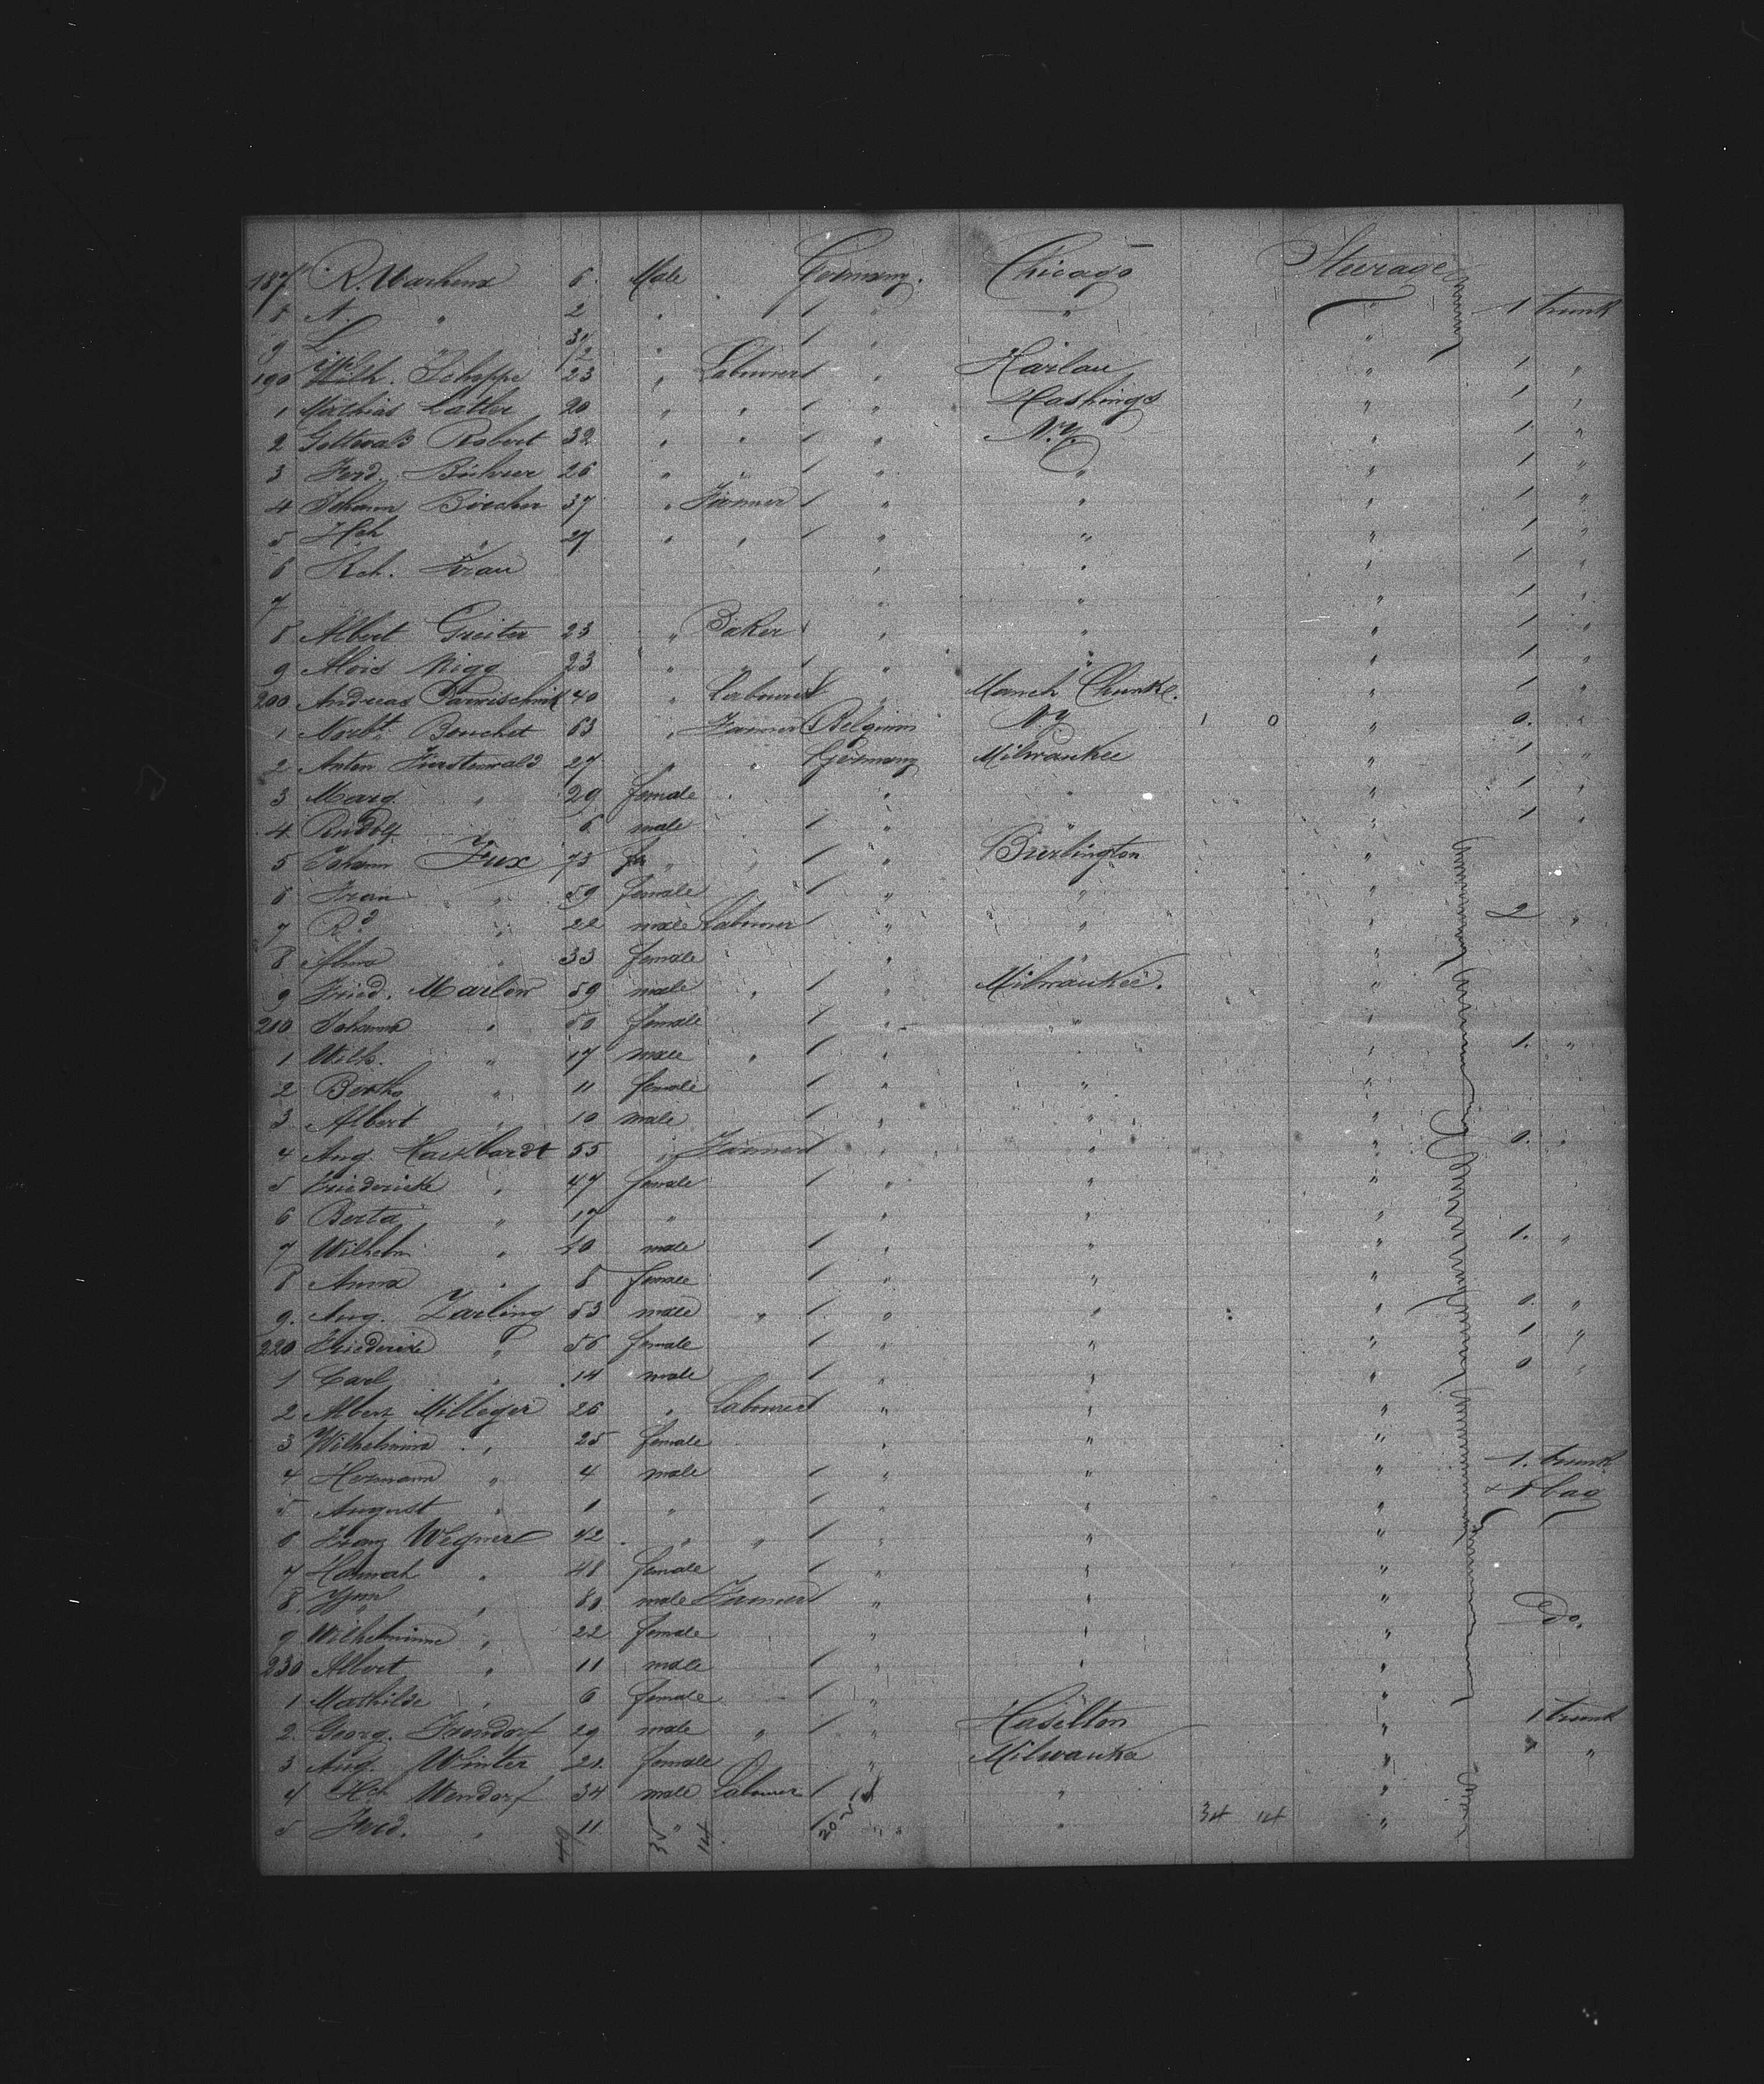 187 R. Warkena 6 Male Germany. Chicago Steerage
8 N. " 2 " " " " 1 trunk
9 L. " " " "
190 Wilh. Schoppe 23 " Labourer " Harlau " 1 "
1 Mathias Latter 20 " " " Hashings " 1 "
2 Gottwald Robert 32 " " " N.Y. " 1 "
3 Ferd. Bührer 26 " " " " " 1 "
4 Johann Boecher 37 " Farmer " " " 1 "
5 Hch " 27 " " " " " 1 "
6 Rch. Frau " " " 1 "
7 " " " 1 "
8 Albert Greiter 23 " Baker " " " 1 "
9 Alois Nigg 23 " " " " " 1 "
200 Andreas 40 " Labourer " Manch Chunke. " 1 "
1 Norbt. Bouchet 63 " Farmer Belgium N.Y. 1 0 " 0. "
2 Anton Furstenwald 27 " " Germany Milwaukee " 1 "
3 Marg. " 29 female " " " 1 "
4 Rudolf 6 male " " " 1 "
5 Johann Fux 73 " " " Burlington "
6 Frau " 59 female " " "
7 Rd " 22 male Labourer " " " 2 "
8 Alma " 33 female " " "
9 Fried. Marlow 59 male " " Milwaukee. "
210 Johanna " 50 female " " "
1 Wilh. " 17 male " " " " 1. "
2 Bertha " 11 female " " "
3 Albert " 10 male " " "
4 Aug. Hackbardt 55 " Farmer " " " 0. "
5 Friedericke " 47 female " " "
6 Berta " 17 " " " "
7 Wilhelm " 10 male " " " 1. "
8 Anna " 8 female " " "
9. Aug. Zarling 53 male " " " " 0. "
220 Friederike " 56 female " " " 1 "
1 Carl " 14 male " " " 0 "
2 Albert Milleger 26 " Labourer " " "
3 Wilhelmina " 25 female " " "
4 Hermann " 4 male " " " 1. trunk
5 August " 1 " " " " + 1 bag
6 Franz Wegner 42 " " " " "
7 Hannah " 48 female " " "
8 " 80 male Farmer " " " Do.
9 Wilhelmine " 22 female " " "
230 Albert " 11 male " " "
1 Mathilde " 6 female " " "
2. Georg. Grendorf 29 male " " Haselton " 1 trunk
3 Aug. Winter 21. female " Milwauke " " "
4 Hch Wendorf 34 male Labourer " " "
5 Ferd. " 11 " " " 34 14 "